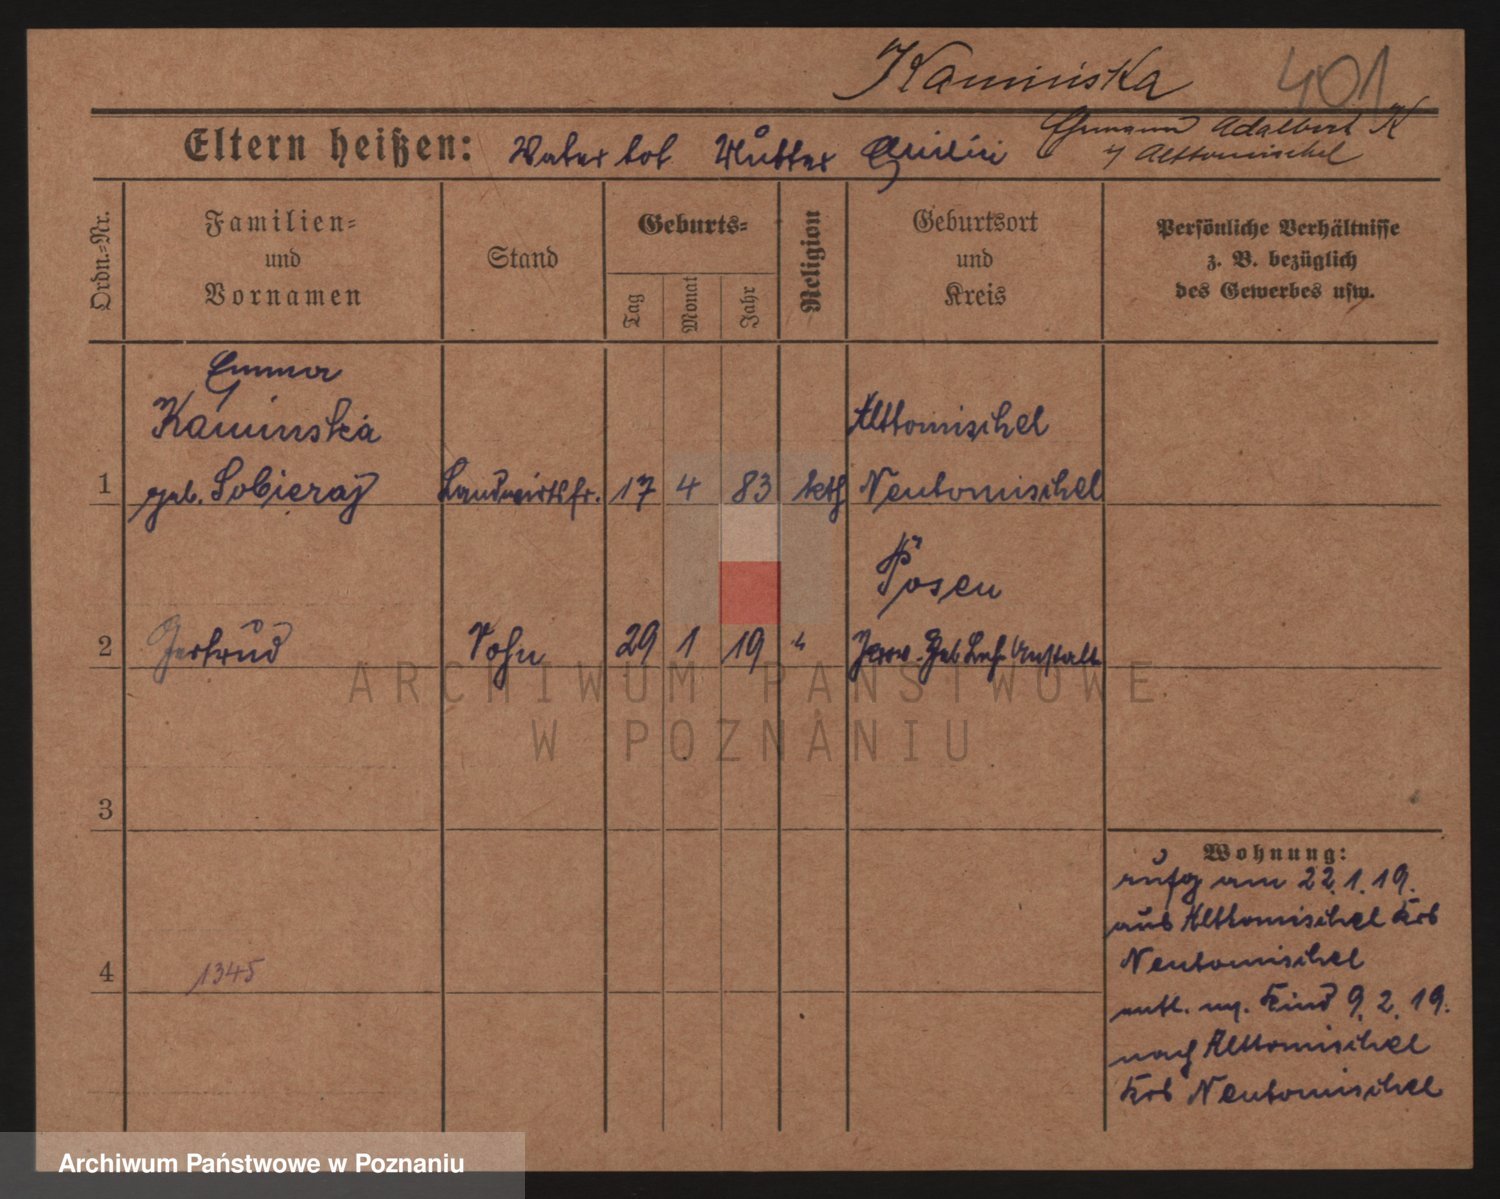 Kaminska
401
Eltern heißen: Vater tot Mutter Emilie
Ehemann Adalbert K
Alttomischel
Ordn.=Nr.
Familien=
und
Vornamen
Stand
Geburts=
Tag
Monat
Jahr
Religion
Geburtsort
und
Kreis
Persönliche Verhältnisse
z. B. bezüglich
des Gewerbes usw.
Emma
Kaminska
Alttomischel
1 geb. Sobieraj Landwirtsfr. 17 4 83 kth Neutomischel
Posen
2 Gertrud 29 1 19 " Geb Anstalt
3
4
1345
Wohnung:
am 22.1.19.
aus Alttomischel Krs
Neutomischel
entl. m. Kind 9.2.19.
nach Alttomischel
Krs Neutomischel
ARCHIWUM PAŃSTWOWE
W POZNANIU
Archiwum Państwowe w Poznaniu